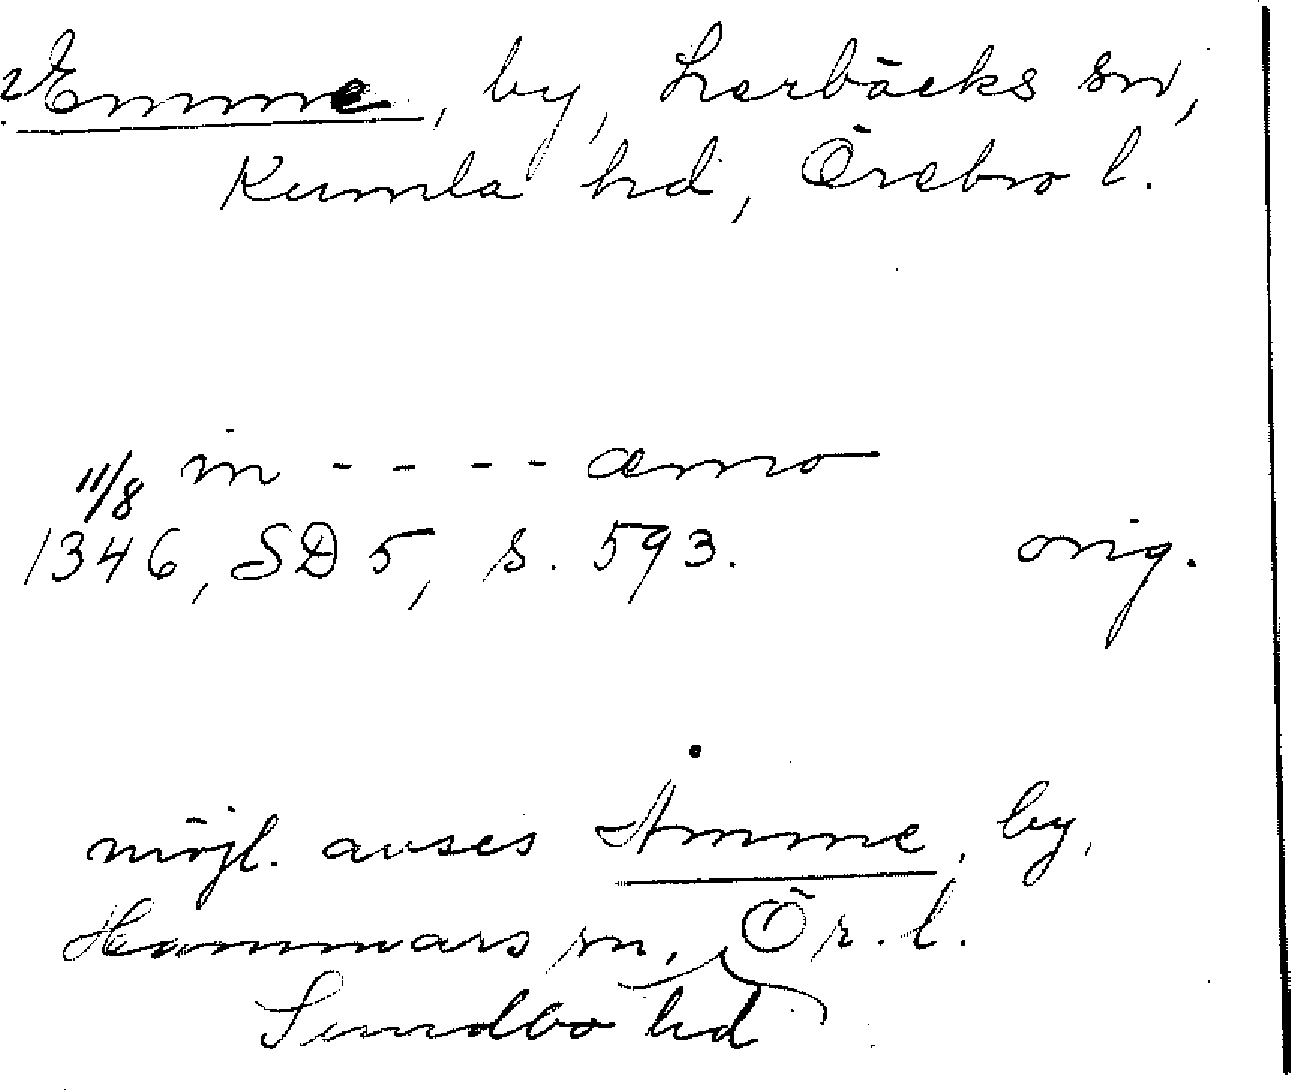 Emme, by, Lerbäcks sn,
Kumla hd, Örebro l.
in - - - - æmo
11/8
1346, SD 5, s. 593. orig.
möjl. avses Åmme, by,
Hammars sn, Ör. l.
Sundbo hd